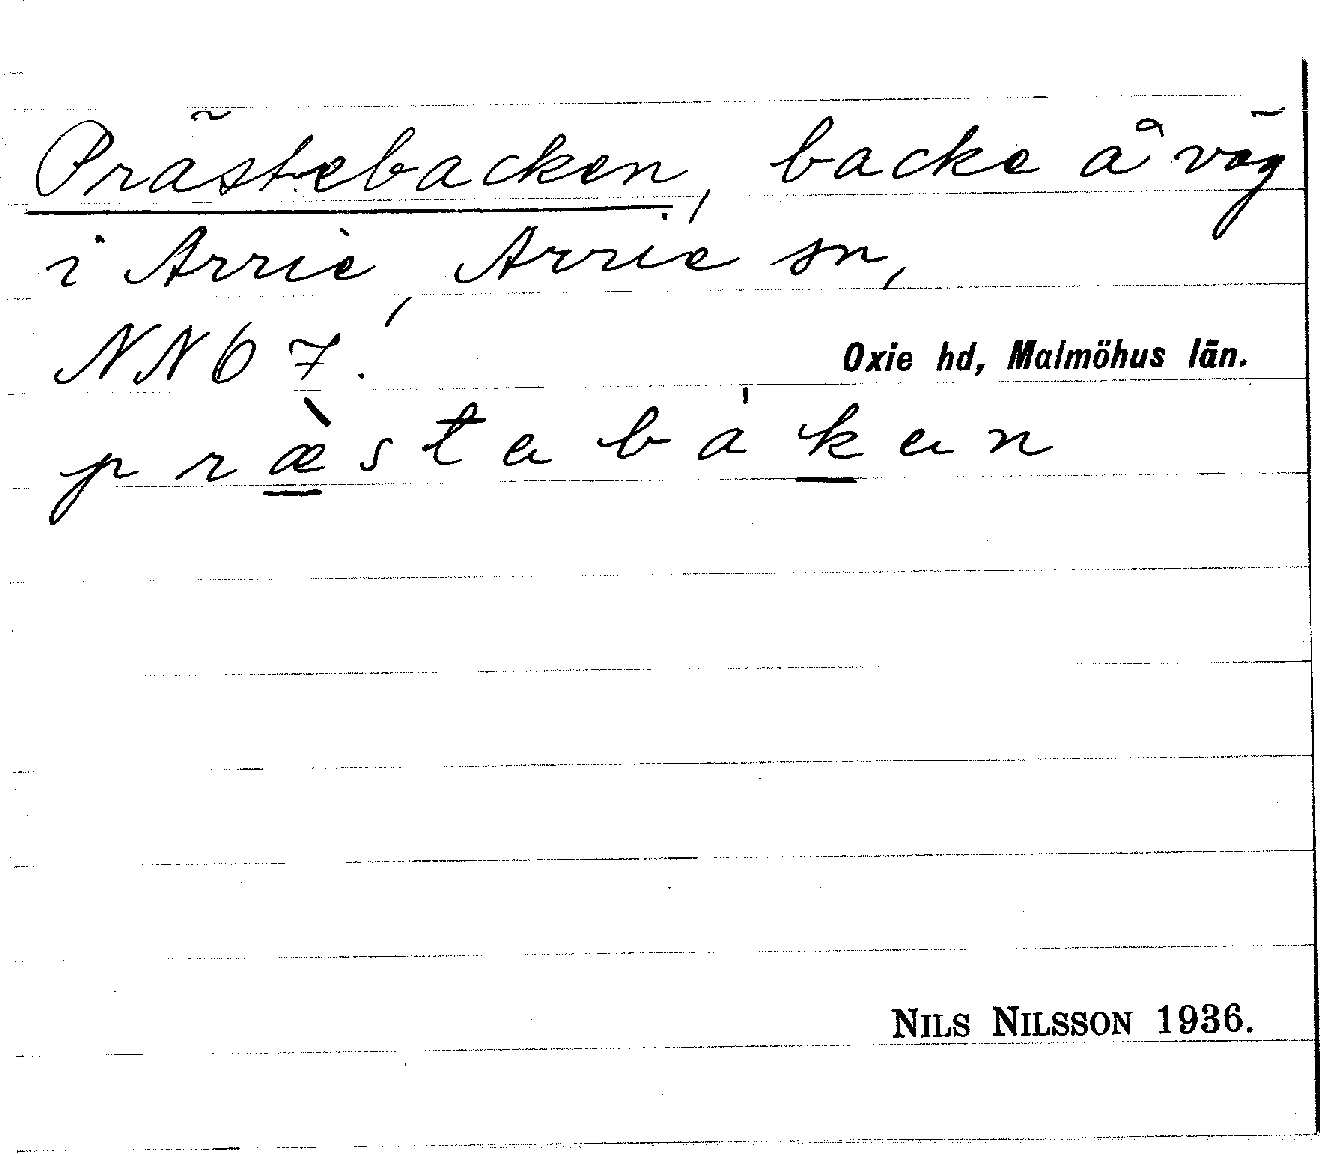 Prästebacken, backe å väg
i Arrie, Arrie sn,
NN67.
Oxie hd, Malmöhus län.
præ̀stabákan
NILS NILSSON 1936.